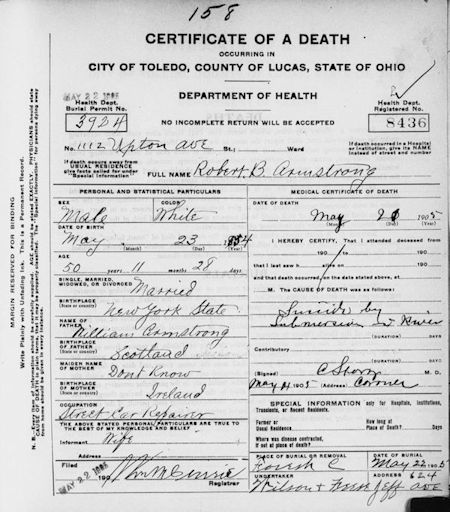 158
CERTIFICATE OF A DEATH
OCCURRING IN
CITY OF TOLEDO, COUNTY OF LUCAS, STATE OF OHIO
DEPARTMENT OF HEALTH
MAY 22 1905
Health Dept.
Burial Permit No.
3924
NO INCOMPLETE RETURN WILL BE ACCEPTED
Health Dept.
Registered No.
8436
No. 1112 Upton ave St.; Ward
If death occurred in a Hospital or Institution, give its NAME instead of street and number
If death occurs away from USUAL RESIDENCE give facts called for under "Special Information"
FULL NAME Robert B Armstrong
MARGIN RESERVED FOR BINDING
Write Plainly with Unfading Ink. This is a Permanent Record.
PERSONAL AND STATISTICAL PARTICULARS
SEX Male
COLOR White
DATE OF BIRTH
May 23 1854
(Month) (Day) (Year)
AGE
50 years 11 months 28 days
SINGLE, MARRIED, WIDOWED, OR DIVORCED Married
BIRTHPLACE (State or country) New York State
NAME OF FATHER William Armstrong
BIRTHPLACE OF FATHER (State or country) Scotland
MAIDEN NAME OF MOTHER Dont Know
BIRTHPLACE OF MOTHER (State or country) Ireland
OCCUPATION Street Car Repairer
THE ABOVE STATED PERSONAL PARTICULARS ARE TRUE TO THE BEST OF MY KNOWLEDGE AND BELIEF
Informant Wife
Filed
MAY 22 1905
190
Registrar
MEDICAL CERTIFICATE OF DEATH
DATE OF DEATH
May 1905
(Month) (Day) (Year)
I HEREBY CERTIFY, That I attended deceased
from 190 to 190
that I last saw h alive on 190
and that death occurred, on the date stated above, at M.
The CAUSE OF DEATH was as follows:
Suicide by
Submersion in River
(Duration) Days
Contributory
(Duration) Days
(Signed) C Storz M. D.
May 1905 (Address) Corner
SPECIAL INFORMATION only for Hospitals, Institutions, Transients, or Recent Residents.
Former or Usual Residence
How long at Place of Death? Days
Where was disease contracted, if not at place of death?
PLACE OF BURIAL OR REMOVAL
Forest C
DATE OF BURIAL
May 22 1905
UNDERTAKER
Wilson +
ADDRESS 624
Jeff ave